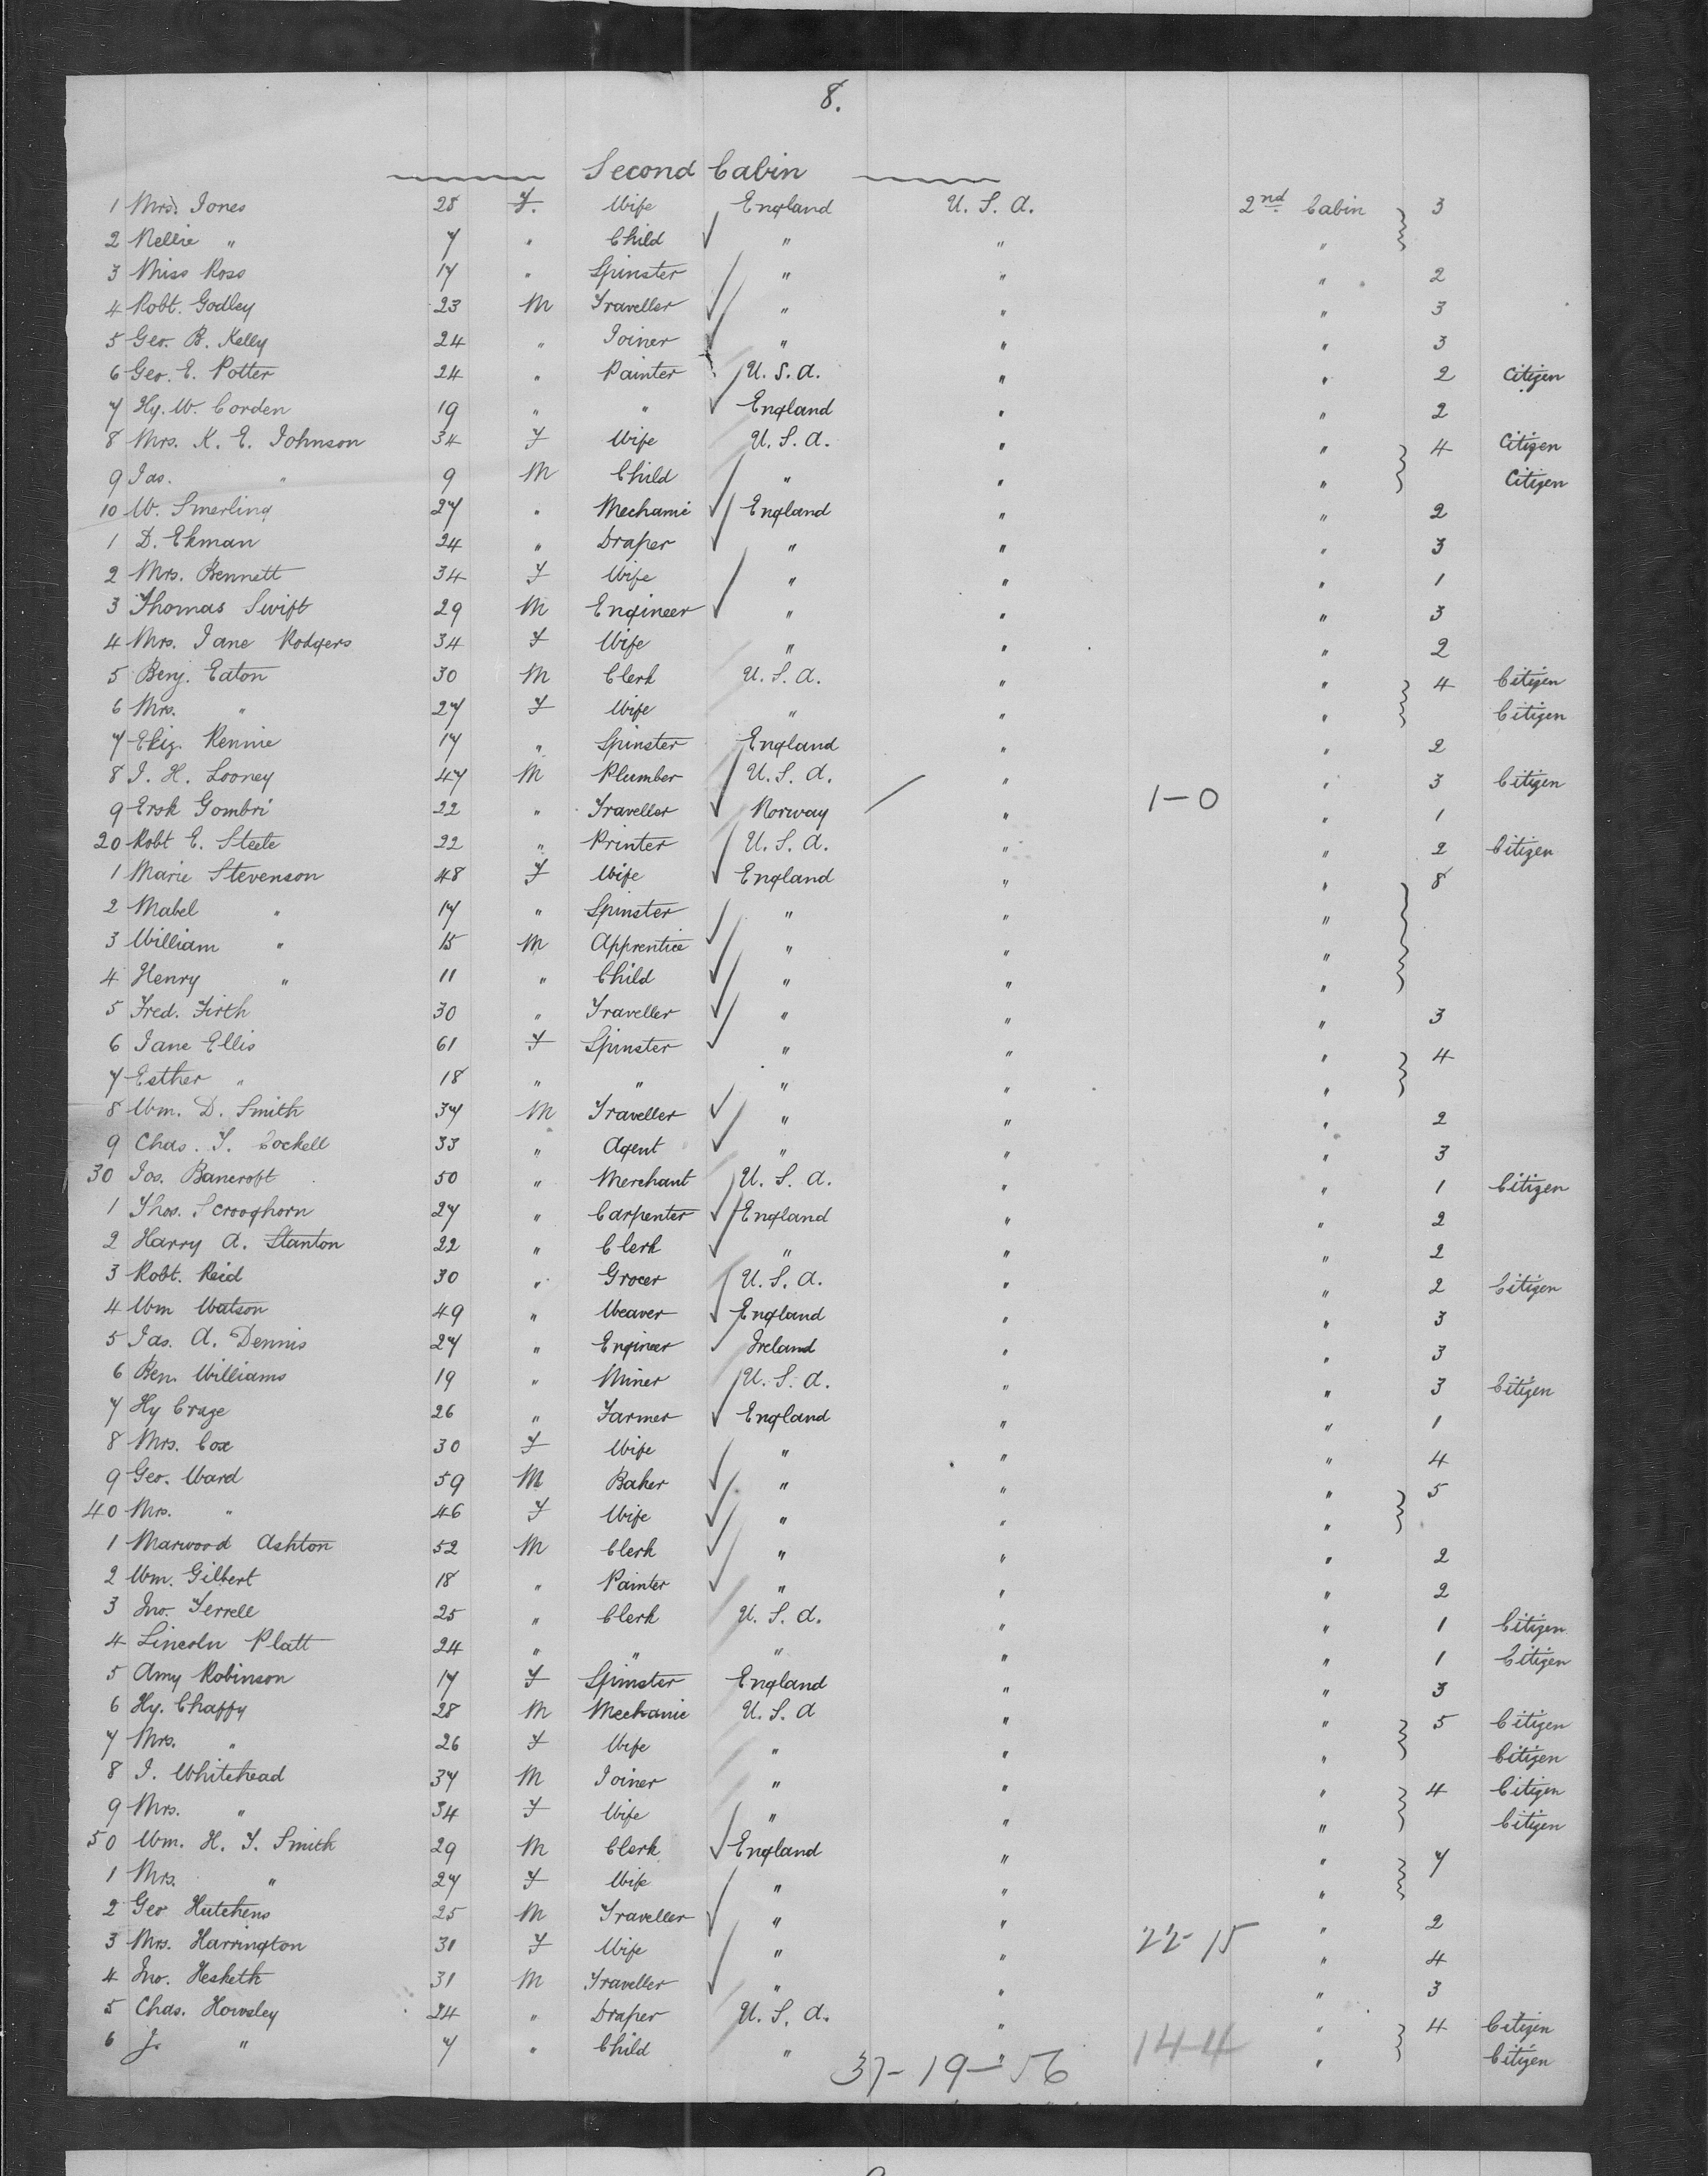 8.
Second Cabin
1 Mrs. Jones 28 F. Wife England U. S. A. 2nd Cabin 3
2 Nellie " 7 " Child " " "
3 Miss Ross 17 " Spinster " " " 2
4 Robt. Godley 23 M Traveller " " " 3
5 Geo. B. Kelly 24 " Joiner " " " 3
6 Geo. E. Potter 24 " Painter U. S. A. " " 2 Citizen
7 Hy. W. Corden 19 " " England " " 2
8 Mrs. K. E. Johnson 34 F Wife U. S. A. " " 4 Citizen
9 Jas. " 9 M Child " " " Citizen
10 W. Smerling 27 " Mechanic England " " 2
1 D. Ekman 24 " Draper " " " 3
2 Mrs. Bennett 34 F Wife " " " 1
3 Thomas Swift 29 M Engineer " " " 3
4 Mrs. Jane Rodgers 34 F Wife " " " 2
5 Benj. Eaton 30 M Clerk U. S. A. " " 4 Citizen
6 Mrs. " 27 F Wife " " " Citizen
7 Rennie 17 " Spinster England " " 2
8 J. H. Looney 47 M Plumber U. S. A. " " 3 Citizen
9 Ersk Gombri 22 " Traveller Norway " 1-0 " 1
20 Robt E. Steele 22 " Printer U. S. A. " " 2 Citizen
1 Marie Stevenson 48 F Wife England " " 8
2 Mabel " 17 " Spinster " " "
3 William " 15 M Apprentice " " "
4 Henry " 11 " Child " " "
5 Fred. Firth 30 " Traveller " " " 3
6 Jane Ellis 61 F Spinster " " " 4
7 Esther " 18 " " " " "
8 Wm. D. Smith 37 M Traveller " " " 2
9 Chas. T. Cockell 33 " Agent " " " 3
30 Jos. Bancroft 50 " Merchant U. S. A. " " 1 Citizen
1 Thos. Scrooghorn 27 " Carpenter England " " 2
2 Harry A. Stanton 22 " Clerk " " " 2
3 Robt. Reid 30 " Grocer U. S. A. " " 2 Citizen
4 Wm Watson 49 " Weaver England " " 3
5 Jas. A. Dennis 27 " Engineer Ireland " " 3
6 Ben. Williams 19 " Miner U. S. A. " " 3 Citizen
7 Hy Craze 26 " Farmer England " " 1
8 Mrs. Cox 30 F Wife " " " 4
9 Geo. Ward 59 M Baker " " " 5
40 Mrs. " 46 F Wife " " "
1 Marwood Ashton 52 M Clerk " " " 2
2 Wm. Gilbert 18 " Painter " " " 2
3 Jno. Terrell 25 " Clerk U. S. A. " " 1 Citizen
4 Lincoln Platt 24 " " " " " 1 Citizen
5 Amy Robinson 17 F Spinster England " " 3
6 Hy. Chaffy 28 M Mechanic U. S. A " " 5 Citizen
7 Mrs. " 26 F Wife " " " Citizen
8 J. Whitehead 37 M Joiner " " " 4 Citizen
9 Mrs. " 34 F Wife " " " Citizen
50 Wm. H. T. Smith 29 M Clerk England " " 7
1 Mrs. " 27 F Wife " " "
2 Geo Hutchens 25 M Traveller " " " 2
3 Mrs. Harrington 31 F Wife " " 22-15 " 4
4 Jno. Hesketh 31 M Traveller " " " 3
5 Chas. Howsley 24 " Draper U. S. A. " " 4 Citizen
6 J. " 7 " Child " " 144 " Citizen
37-19-56